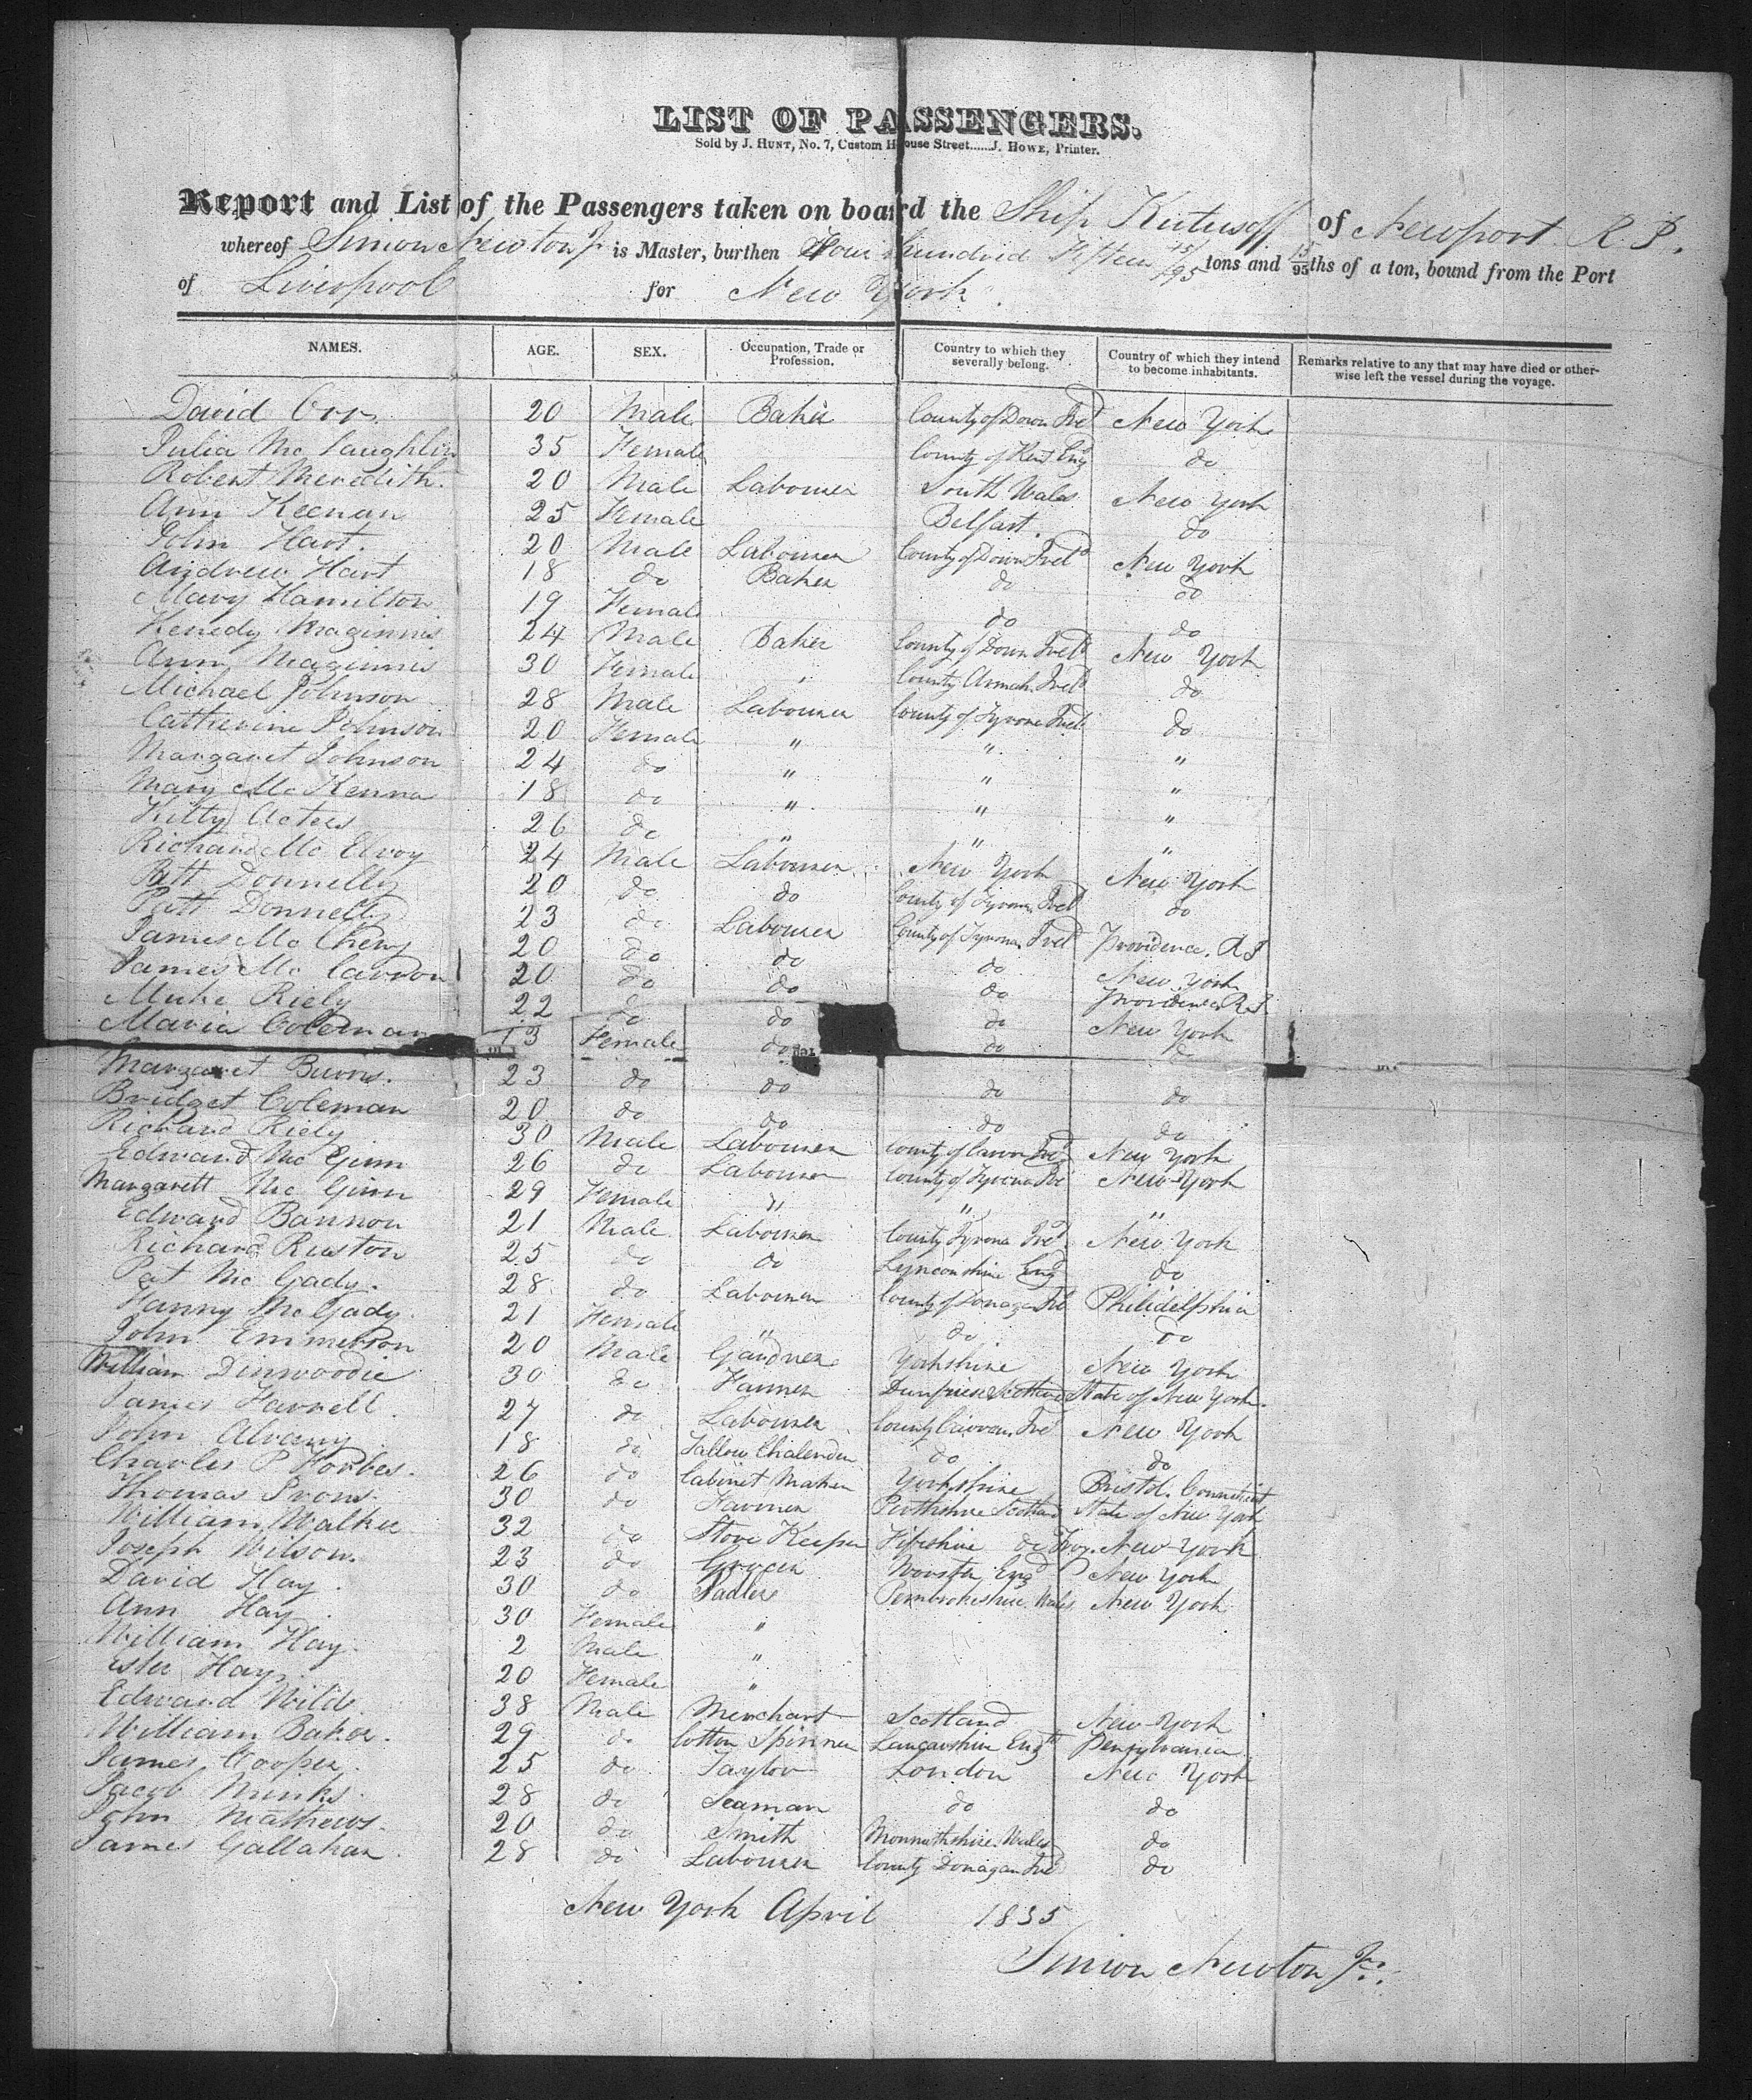 LIST OF PASSENGERS.
Sold by J. HUNT, No. 7, Custom House Street......J. HOWE, Printer.
Report and List of the Passengers taken on board the Ship Kutusoff of Newport R. I.
whereof Simon Newton Jr is Master, burthen Four Hundred Fifteen 15/95 tons and 15/95ths of a ton, bound from the Port
of Liverpool for New York.
NAMES. AGE. SEX. Occupation, Trade or Profession. Country to which they severally belong. Country of which they intend to become inhabitants. Remarks relative to any that may have died or otherwise left the vessel during the voyage.
David Orr. 20 Male Baker County of Down Ired New York
Julia Mc Laughlin 35 Female County of Kent Eng do
Robert Meredith. 20 Male Labourer South Wales New York
Ann Keenan 25 Female Belfast. do
John Hart. 20 Male Labourer County of Down Ireld New York
Andrew Hart 18 do Baker do do
Mary Hamilton 19 Female do do
Kenedy Maginnis 24 Male Baker County of Down Ireld New York
Anny Maginnis 30 Female " County Armah Ireld do
Michael Johnson 28 Male Labourer County of Tyrone Ireld do
Catherine Johnson 20 Female " " "
Margaret Johnson 24 do " " "
Mary Mc Kenna 18 do " " "
Kitty 26 do " " "
Richard Mc Elvoy 24 Male Labourer New York New York
Patt Donnelly 20 do do County of Tyrone Ireld do
Patt Donnelly 23 do Labourer County of Tyrone Ireld Providence. R I
James Mc 20 do do do New York
James Mc Carron 20 do do do Providence R I
Micke Riely 22 do do do New York
Maria Coleman 13 Female do do do
Margaret Burns. 23 do do do do
Bridget Coleman 20 do do do do
Richard Riely 30 Male Labourer County of Cavan Ired New York
Edward Mc Ginn 26 do Labourer County of Tyrone Ire New York
Margarett Mc Ginn 29 Female " " "
Edward Bannon 21 Male Labourer County Tyrone Ired New York
Richard Ruston 25 do do Lynconshire Eng do
Pat Mc Gady. 28 do Labourer County of Donagan Ire Philidelphia
Fanny McGady. 21 Female " do do
John Emmerson 20 Male Gardner Yorkshire New York
William Dinwoodie 30 do Farmer Dumfries Scotland State of New York.
James Farrell. 27 do Labourer County Cavan, Ired New York
John Alvany 18 do Tallow Chalender do do
Charles P Forbes. 26 do Cabinet Maker Yorkshire Bristol. Connecticut
Thomas 30 do Farmer Perthshire Scotland State of New York
William Walker 32 do Store Keeper Fifeshire do Troy. New York
Joseph Wilson. 23 do Grocer Worster Engd New York
David Hay. 30 do Sadler Pembrokeshire. Wales New York
Ann Hay. 30 Female "
William Hay. 2 Male "
Ester Hay. 20 Female "
Edward Wilde. 38 Male Merchant Scotland New York
William Baker. 29 do Cotton Spinner Lancashire Engd Pensylvania
James Cooper. 25 do Taylor London New York
Jacob Minks. 28 do Seaman do do
John Mathews. 20 do Smith Monmuthshire. Wales do
James Gallahan. 28 do Labourer County Donagan Ired do
New York April 1835
Simon Newton Jr.